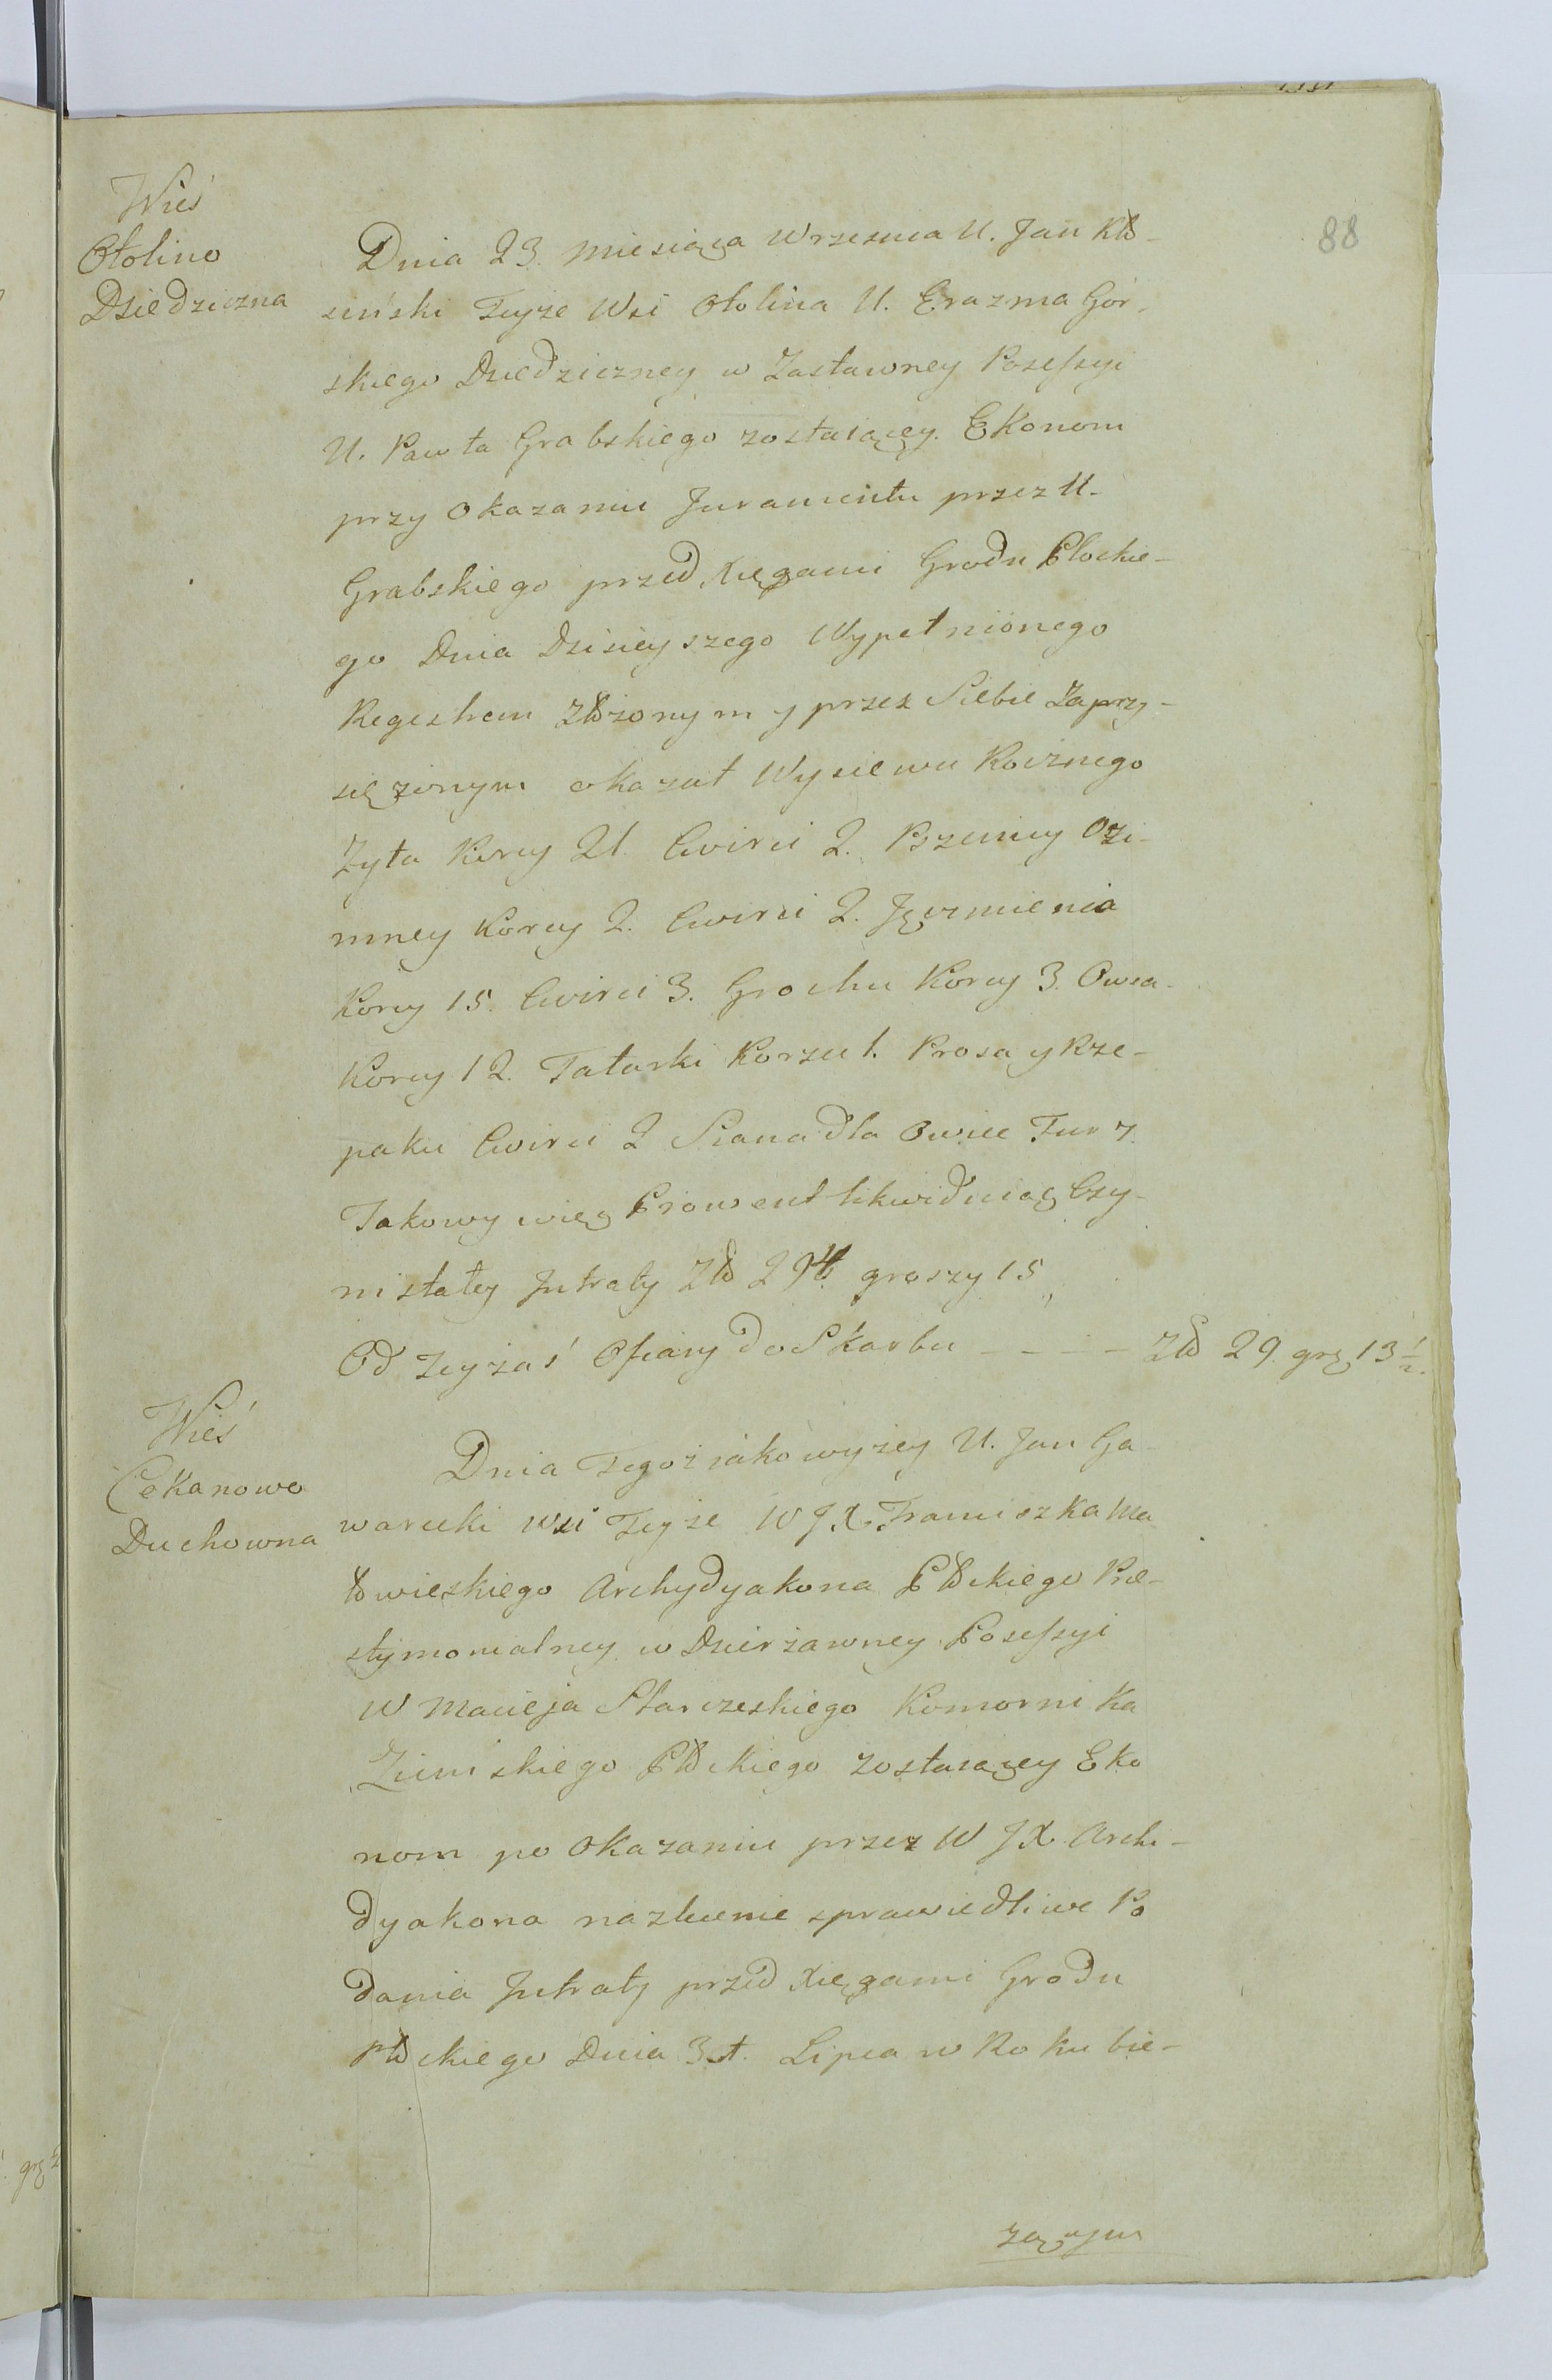 88
Wieś
Otolino
Dziedziczna
Dnia 23. Miesiąca Wrzesnia U. Jan Kło-
siński Teyże Wsi Otolina U. Erazma Gór-
skiego Dziedziczney w Zastawney Possessyi
U. Pawła Grabskiego zostaiącey. Ekonom
przy Okazaniu Juramentu przez U.
Grabskiego przed Xięgami Grodu Płockie-
go Dnia Dzisieyszego Wypełnionego
Regestrem złożonym y przez Siebie Zaprzy-
siężonym okazał Wysiewu Rocznego
Zyta Korcy 21. Cwierci 2. Pszenicy Ozi-
mney Korcy 2. Cwierci 2. Jęczmienia
Korcy 15. Cwierci 3. Grochu Korcy 3. Owsa
Korcy 12. Tatarki Korzec 1. Prosa y Rze-
paku Cwierci 2 Siana dla Owiec Fur 7.
Takowy więc Prowent likwiduiąc Czy-
ni stałey Jntraty Zło 294. groszy 15,
Od teyżaś Ofiary do Skarbu - - - - Zło 29 grz 13 1/2.
Wieś
Cekanowo
Duchowna
Dnia Tegoż iako wyżey U. Jan Ga-
warecki wsi Teyże W J X. Franciszka Ma
łowieskiego Archydyakona Płockiego Pre-
stymonialney w Dzierżawney Possessyi
W Macieja Starczeskiego Komornika
Ziemskiego Płockiego zostaiącey Eko
nom po Okazaniu przez W J X Archi-
dyakona na zlecenie sprawiedliwe Po
dania Jntraty przed Xięgami Grodu
Płockiego Dnia 31. Lipca w Roku bie-
żącym